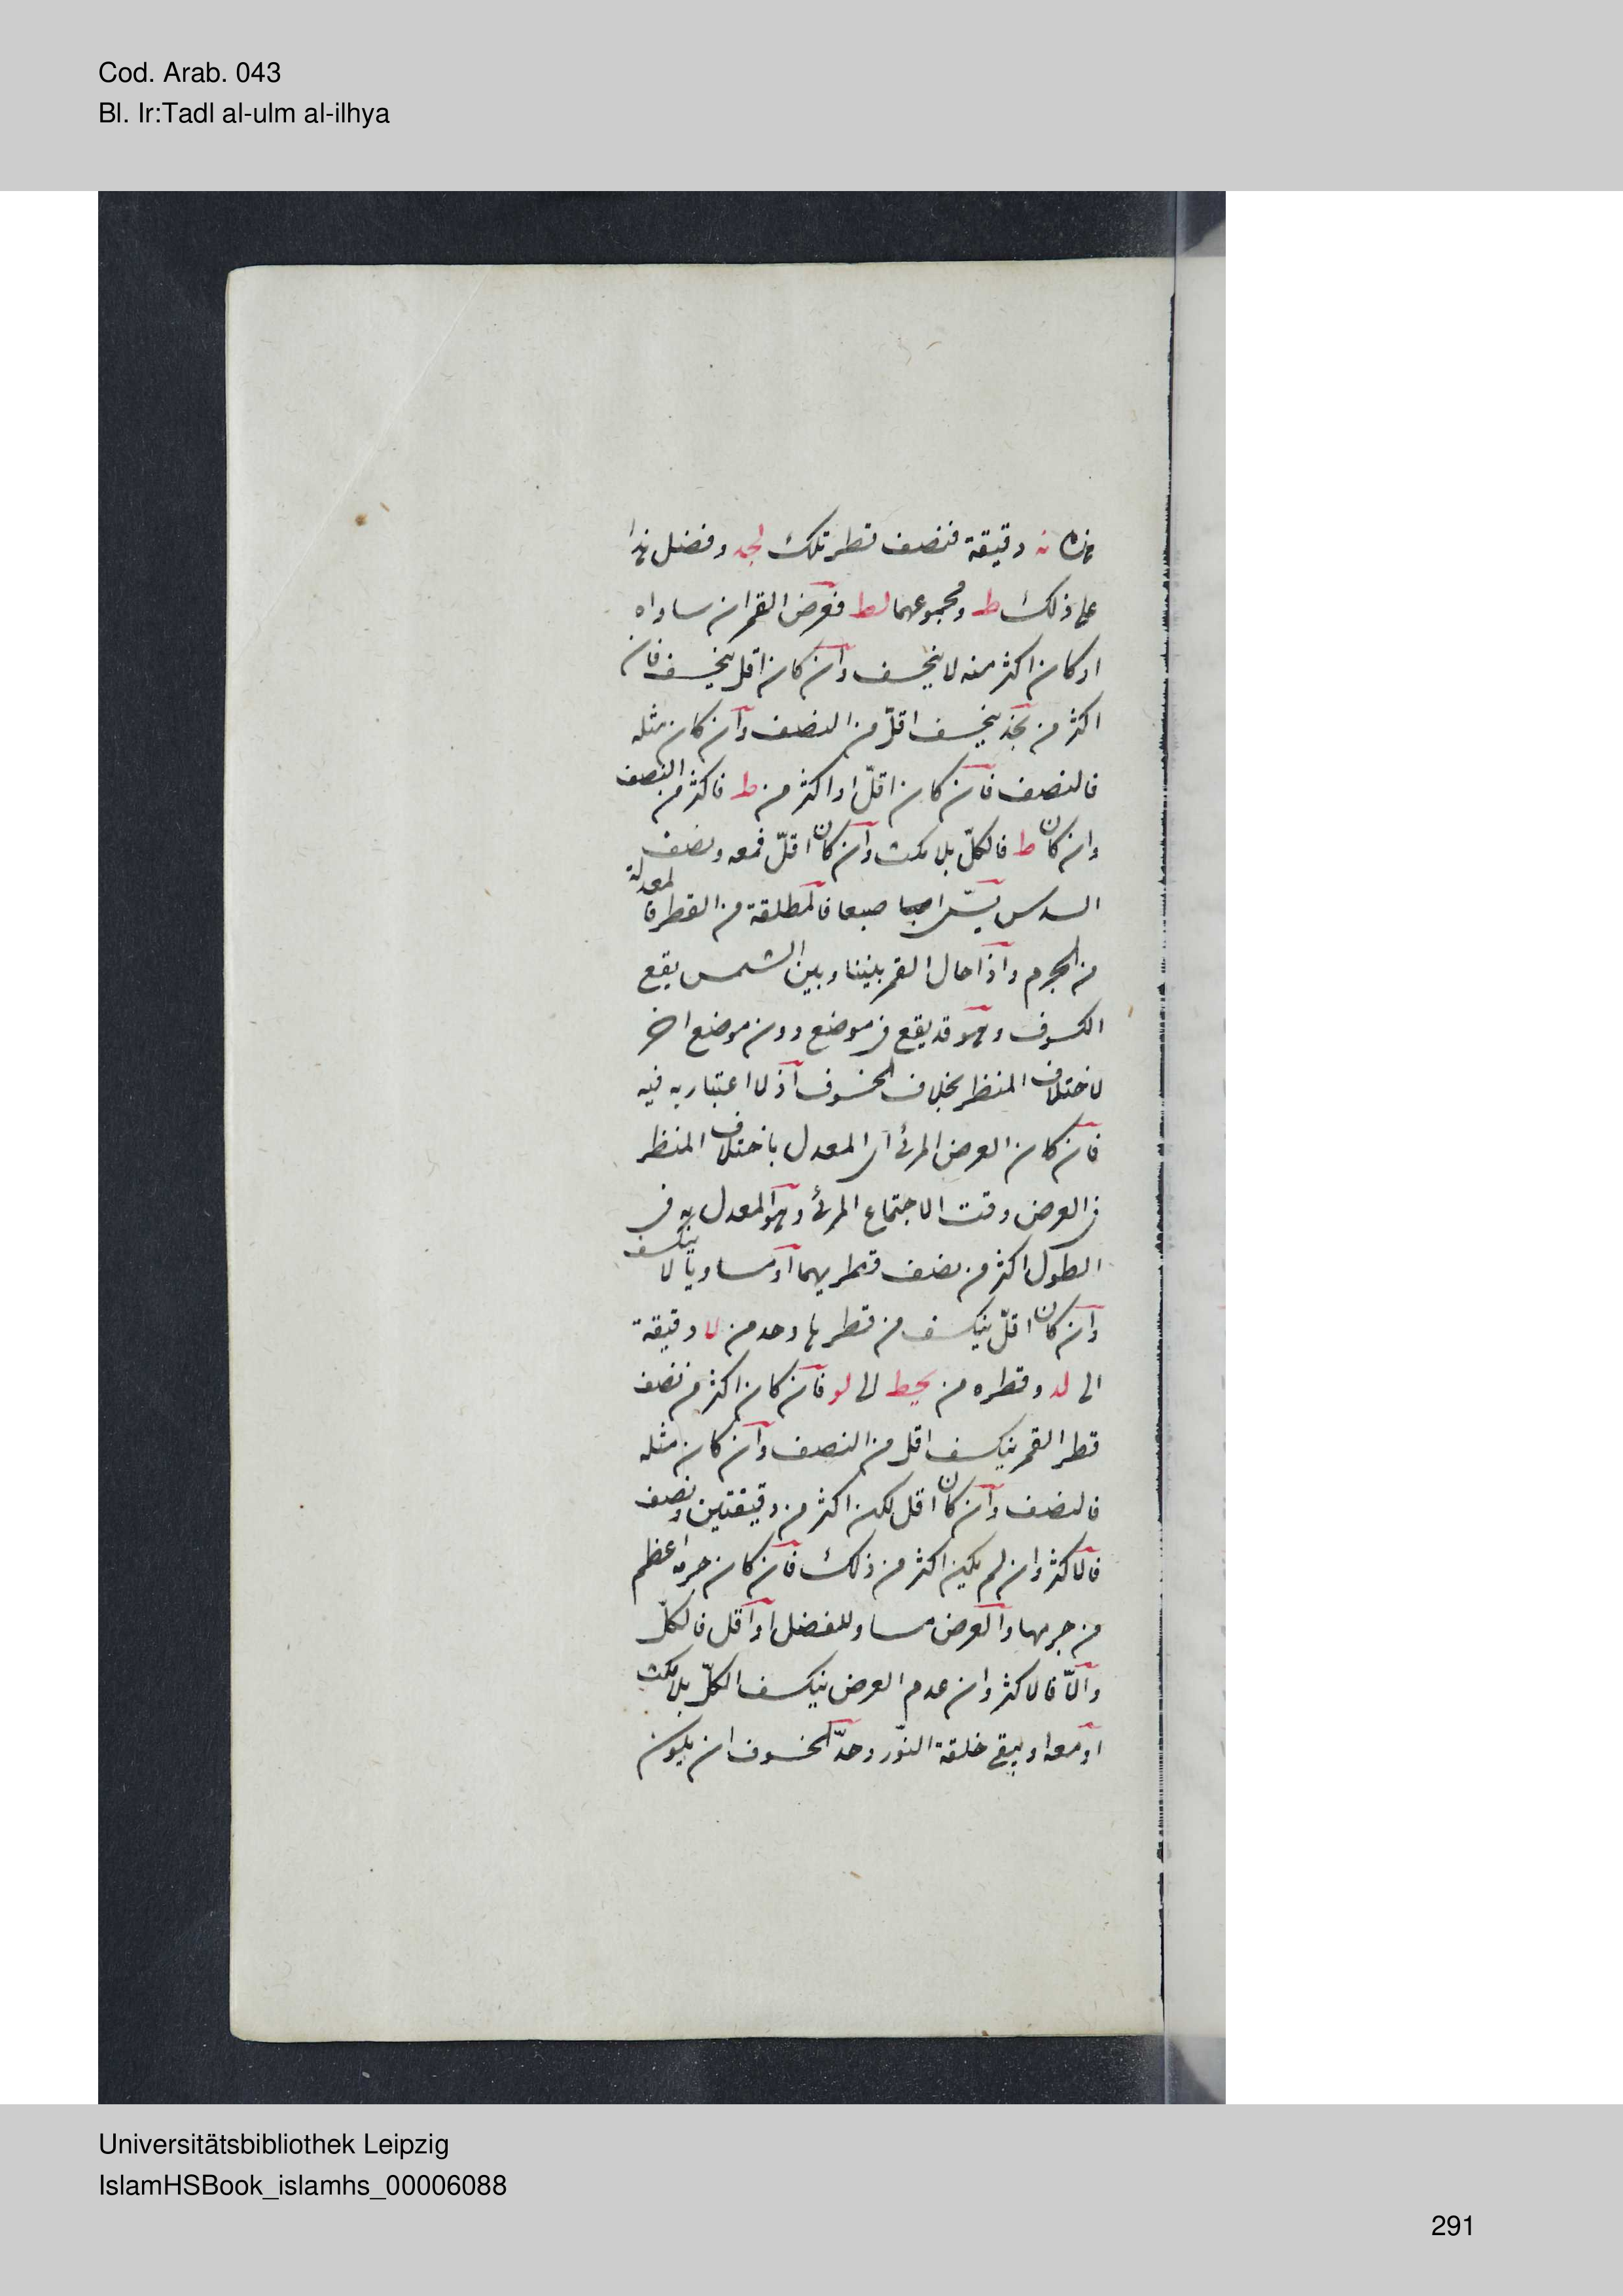 Cod. Arab. 043
Bl. Ir:Tadl al-ulm al-ilhya
هذه نه دقيقة فنصف قطر تلك لجد وفضل هذا
على ذلك ط ومجموعهما لط فعرض القمر ان ساواه
او كان اكثر منه لا ينخسف وان كان اقل ينخسف فان
اكثر من ينخسف اقلّ من النصف وان كان مثله
فالنصف فان كان اقلّ او اكثر من ط فاكثر من النصف
وان كان ط فالكلّ بلا مكث وان كان اقلّ فمعه ونصف
السدس يسمّى اصبعا فالمطلقة من القطر فالمعدلة
من الجرم واذا حال القمر بيننا وبين الشمس يقع
الكسوف وهو قد يقع في موضع دون موضع اخر
لاختلاف المنظر بخلاف الخسوف اذ لا اعتبار به فيه
فان كان العرض المرئى اى المعدل باختلاف المنظر
فى العرض وقت الاجتماع المرئى وهو المعدل به فى
الطول اكثر من نصف قطريهما او مساويا لا ينكسف
وان كان اقلّ ينكسف من قطرها وحد من لا دقيقة
الى لد وقطره من الى لو فان كان اكثر من نصف
قطر القمر ينكسف اقل من النصف وان كان مثله
فالنصف وان كان اقل لكن اكثر من دقيقتين ونصف
فالاكثر وان لم يكن اكثر من ذلك فان كان جرمه اعظم
من جرمها والعرض مساو للفضل او اقل فالكلّ
والّا فالاكثر وان عدم العرض ينكسف الكلّ بلا مكث
او معه او يبقى حلقة النّور وحدّ الخسوف ان يكون
Universitätsbibliothek Leipzig
IslamHSBook_islamhs_00006088
291